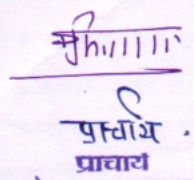 प्राचार्य .
प्राचार्य